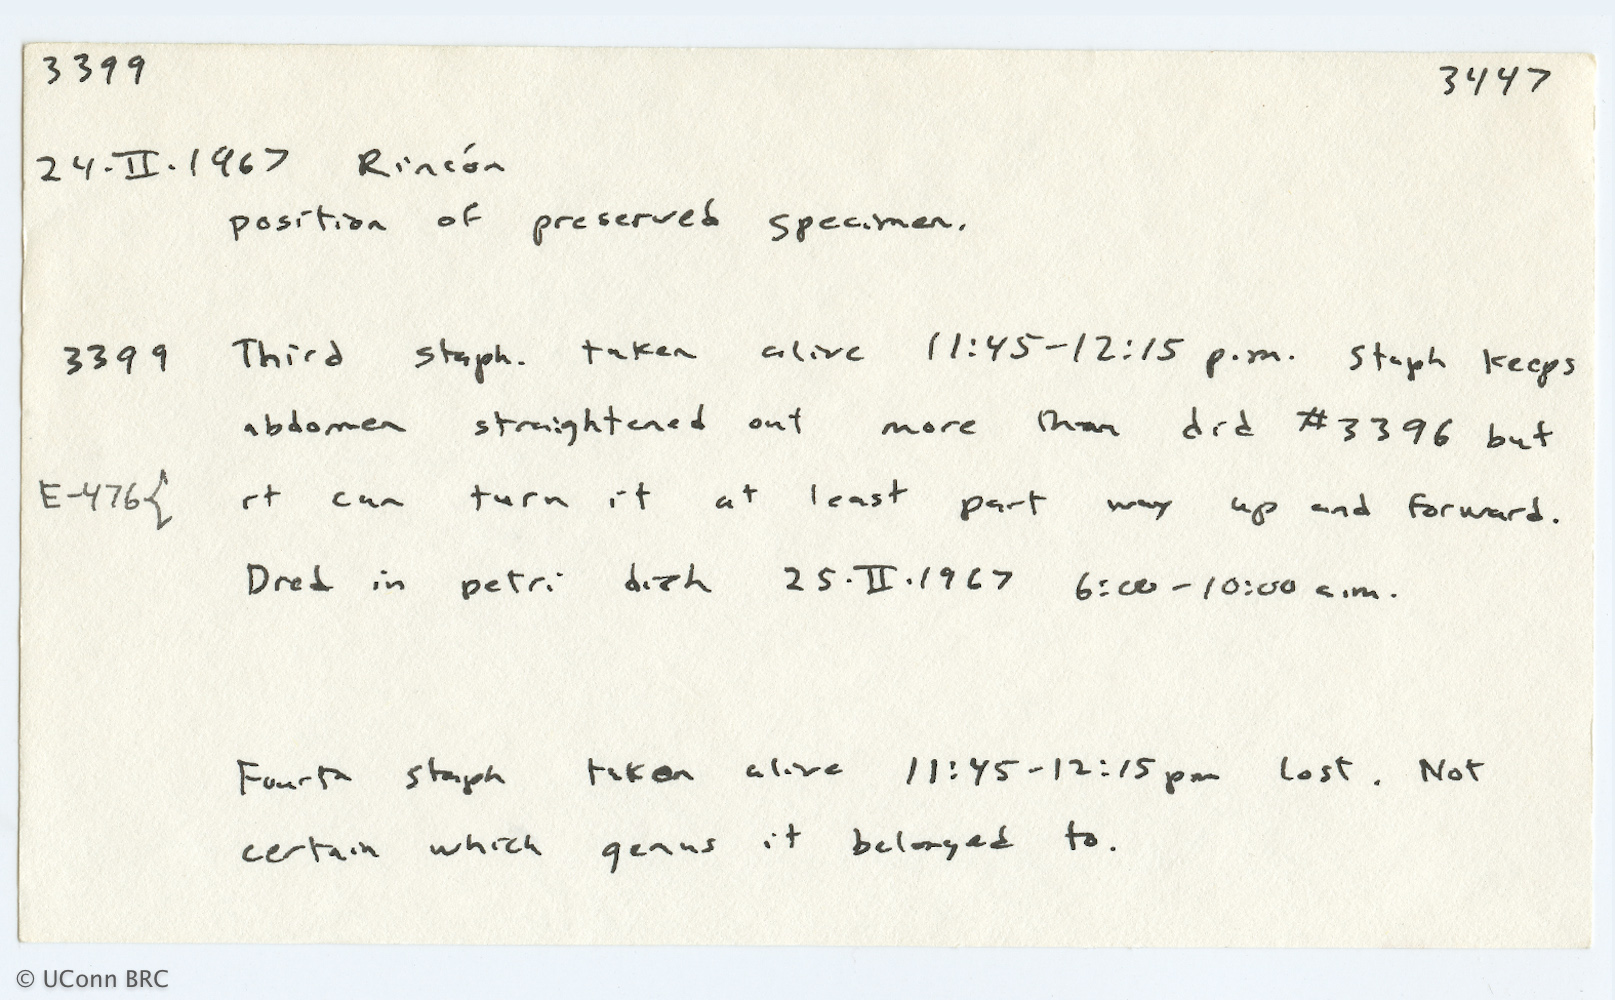 3399 3447
24.II.1967 Rincón
position of preserved specimen.
3399 Third staph. taken alive 11:45-12:15 p.m. Staph keeps
abdomen straightened out more than did #3396 but
E-476{ it can turn it at least part way up and forward.
Died in petri dish 25.II.1967 6:00-10:00 a.m.
Fourth staph taken alive 11:45-12:15 pm Lost. Not
certain which genus it belonged to.
© UConn BRC